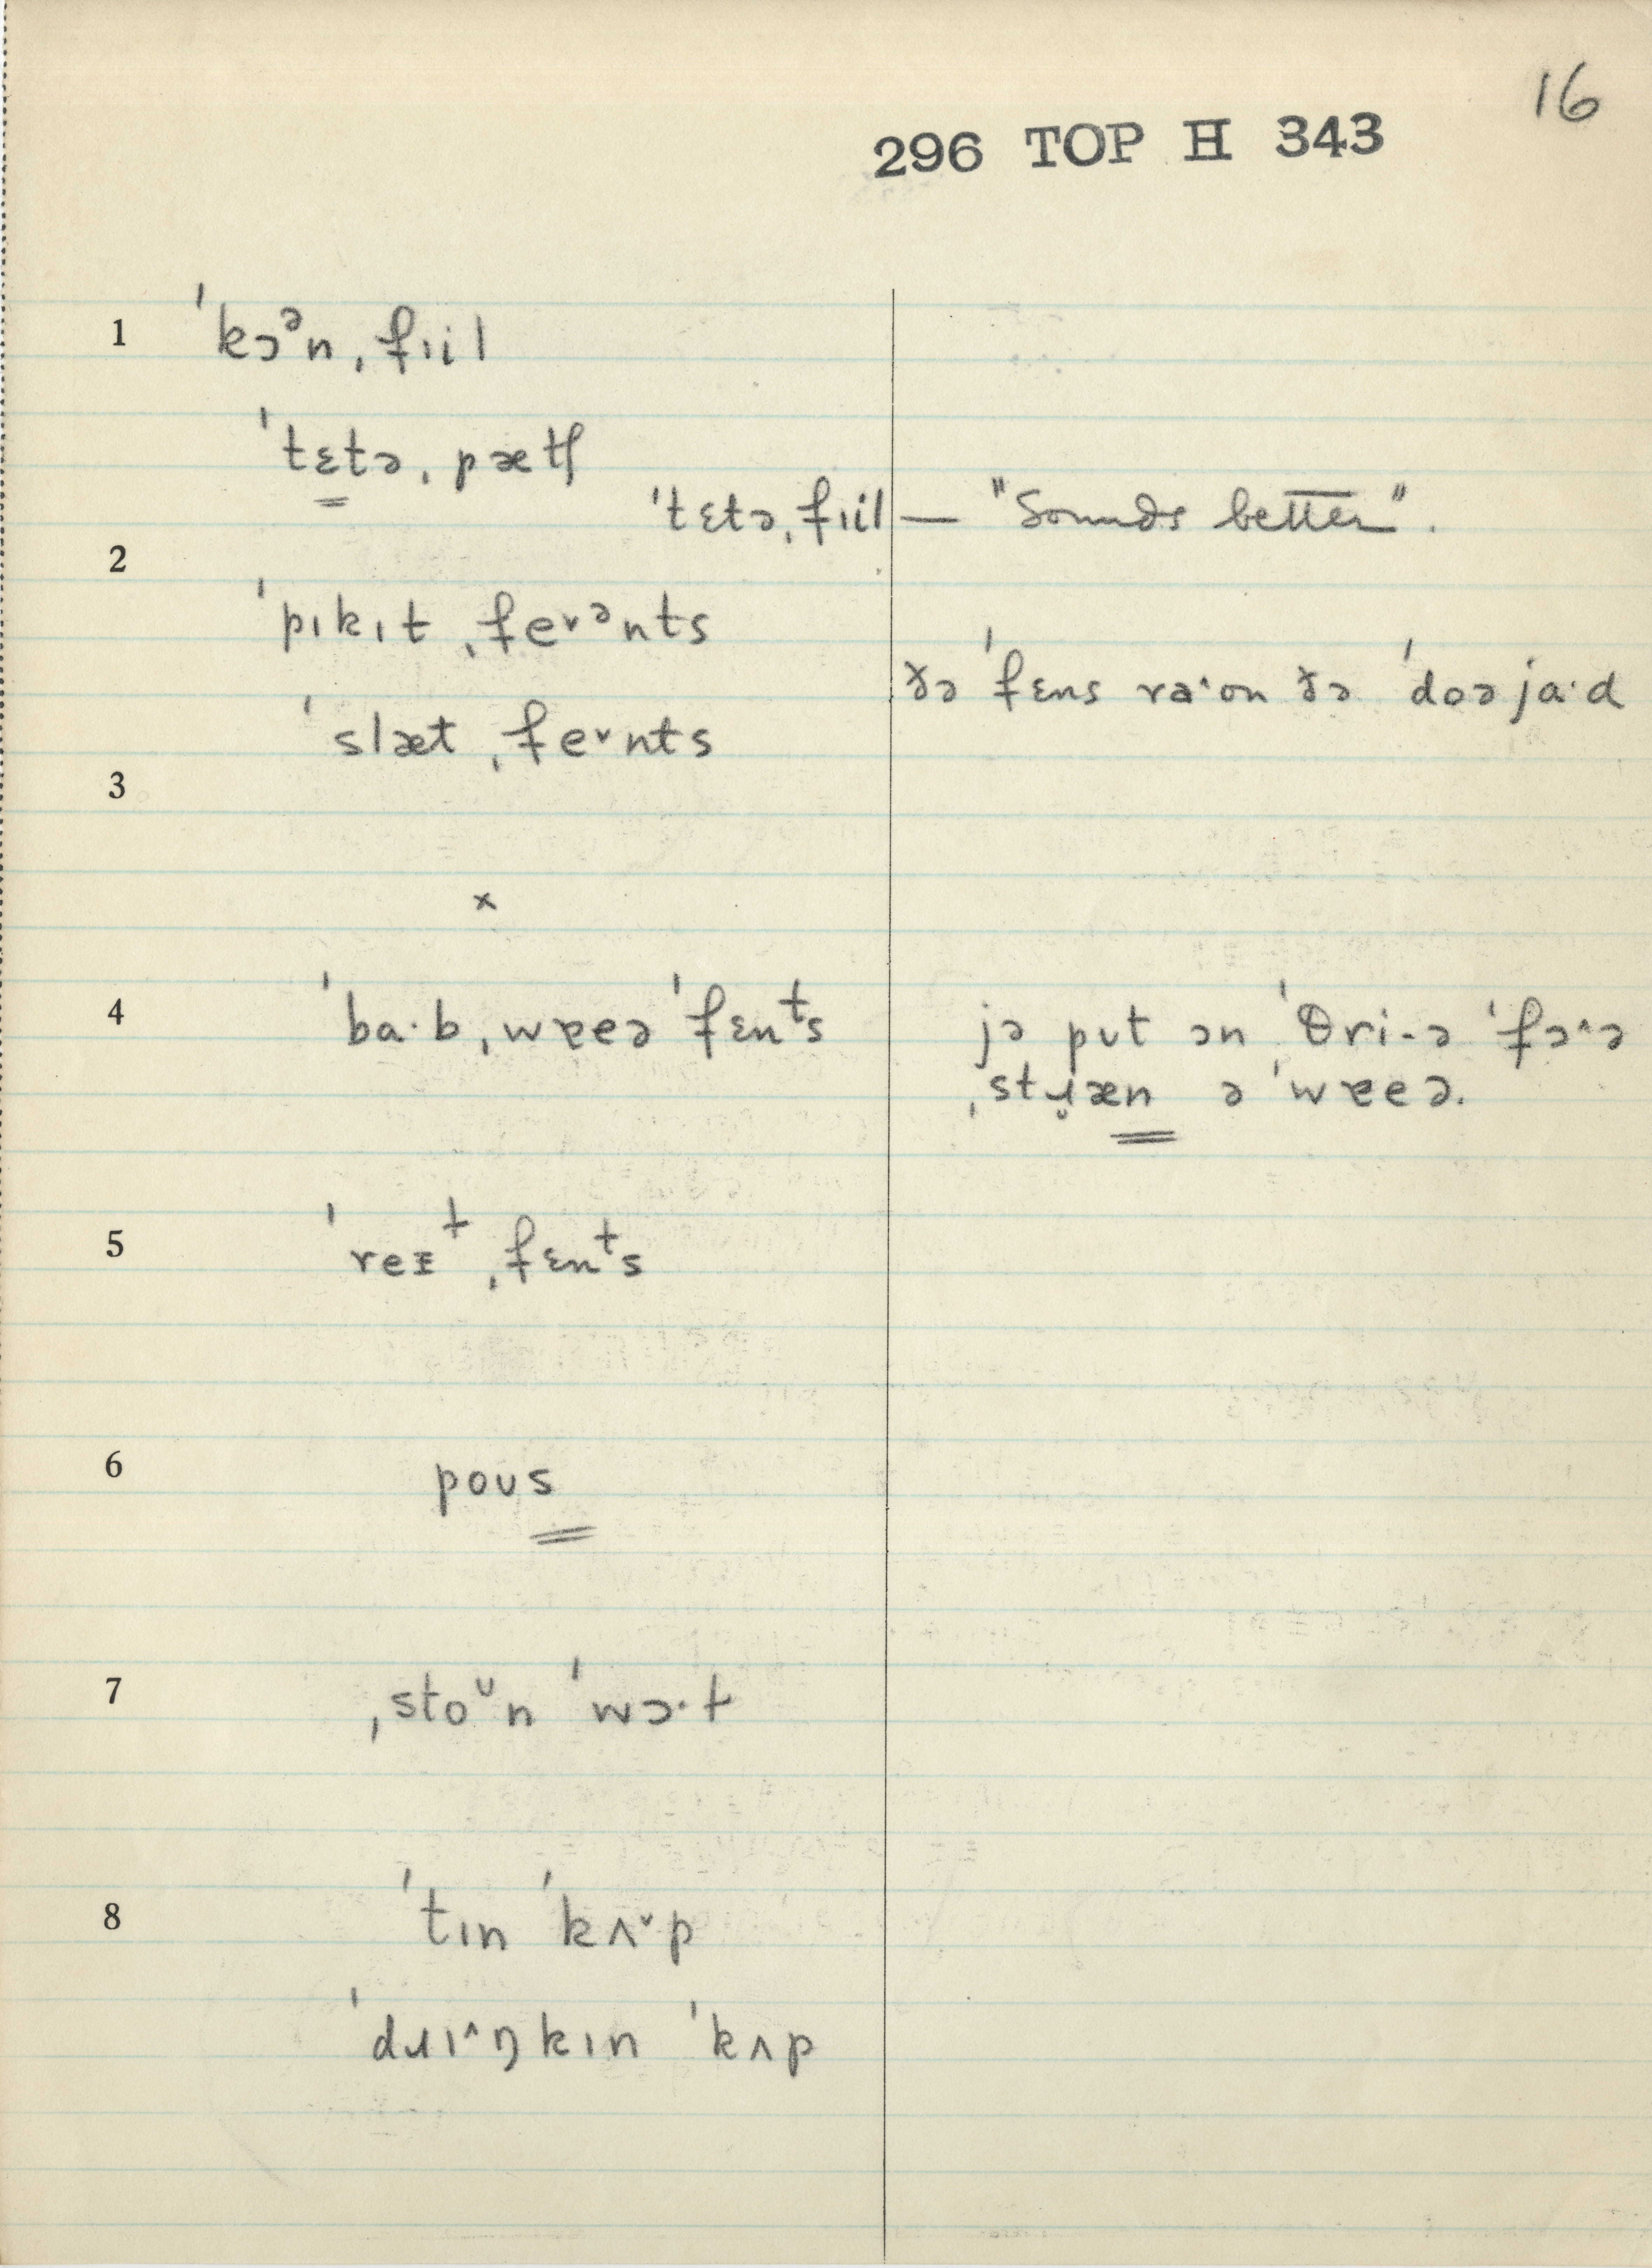 16
296 TOP H 343
1 ˈkɔᵊn ˌfɪil
ˈtɛtə ˌpætʃ
ˈtɛtə ˌfɪil — "Sounds better".
2
ˈpɪkɪt ˌfe˅ᵊnts
ðə ˈfɛns ra˄·on ðə ˈdoə ja·d
ˈslæt ˌfe˅nts
3
×
4 ˈba·b ˌwɐeə ˈfɛnᵗs jə pʊt ɔn ˈθri-ə ˈfɔ˄ə
ˌstɹ̥æn ə ˈwɐeə.
5 ˈreɪᵗ ˌfɛnᵗs
6 poʊs
7 ˌstoᶷn ˈwɔ·ɫ
8 ˈtɪn ˈkʌ˅p
ˈdɹɪ˄ŋkɪn ˈkʌp